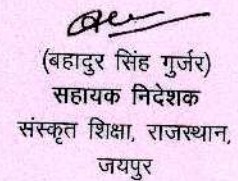 (बहादुर सिंह गुर्जर)
सहायक निदेशक
संस्कृत शिक्षा, राजस्थान,
जयपुर